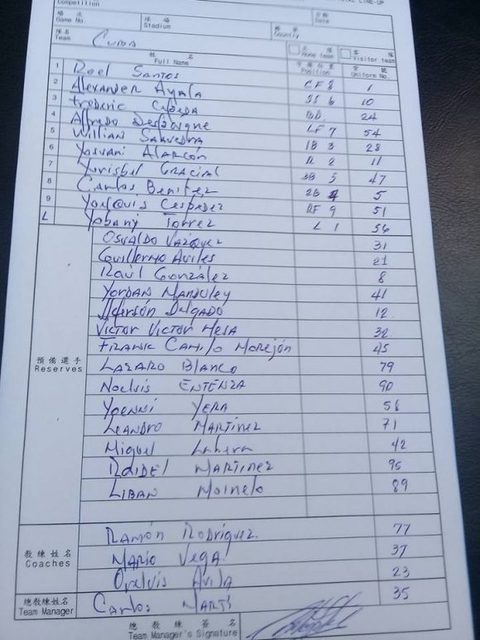 LINE-UP
Competition
場次 Game No.
球場 Stadium
日期 Date
Country
隊名 Team Cuba
Home team Visitor team
姓名 Full Name 守備位置 Position 背號 Uniform No.
1 Roel Santos CF 8 1
2 Alexander Ayala SS 6 10
3 Frederic Cepeda 24
4 Alfredo Despaigne LF 7 54
5 Willian Saavedra 1B 3 28
6 Yosvani Alarcon 2 11
7 Yurisbel Gracial 3B 5 47
8 Carlos Benitez 2B 4 5
9 Yoelquis Cespedes RF 9 51
L Yobany Torrez L 1 56
預備選手 Reserves
Osvaldo Vazquez 31
Guillermo Aviles 21
Raúl González 8
Yordan Manduley 41
Jefersón Delgado 12
Victor Victor Mesa 32
Frank Camilo Morejón 45
Lazaro Blanco 79
Noelvis Entenza 90
Yoenni Yera 56
Leandro Martinez 71
Miguel Lahera 42
Raidel Martinez 95
Liban Moinelo 89
教練姓名 Coaches
Ramón Rodriguez 77
Mario Vega 37
Orelvis Avila 23
總教練姓名 Team Manager Carlos Martí 35
總教練簽名 Team Manager's Signature